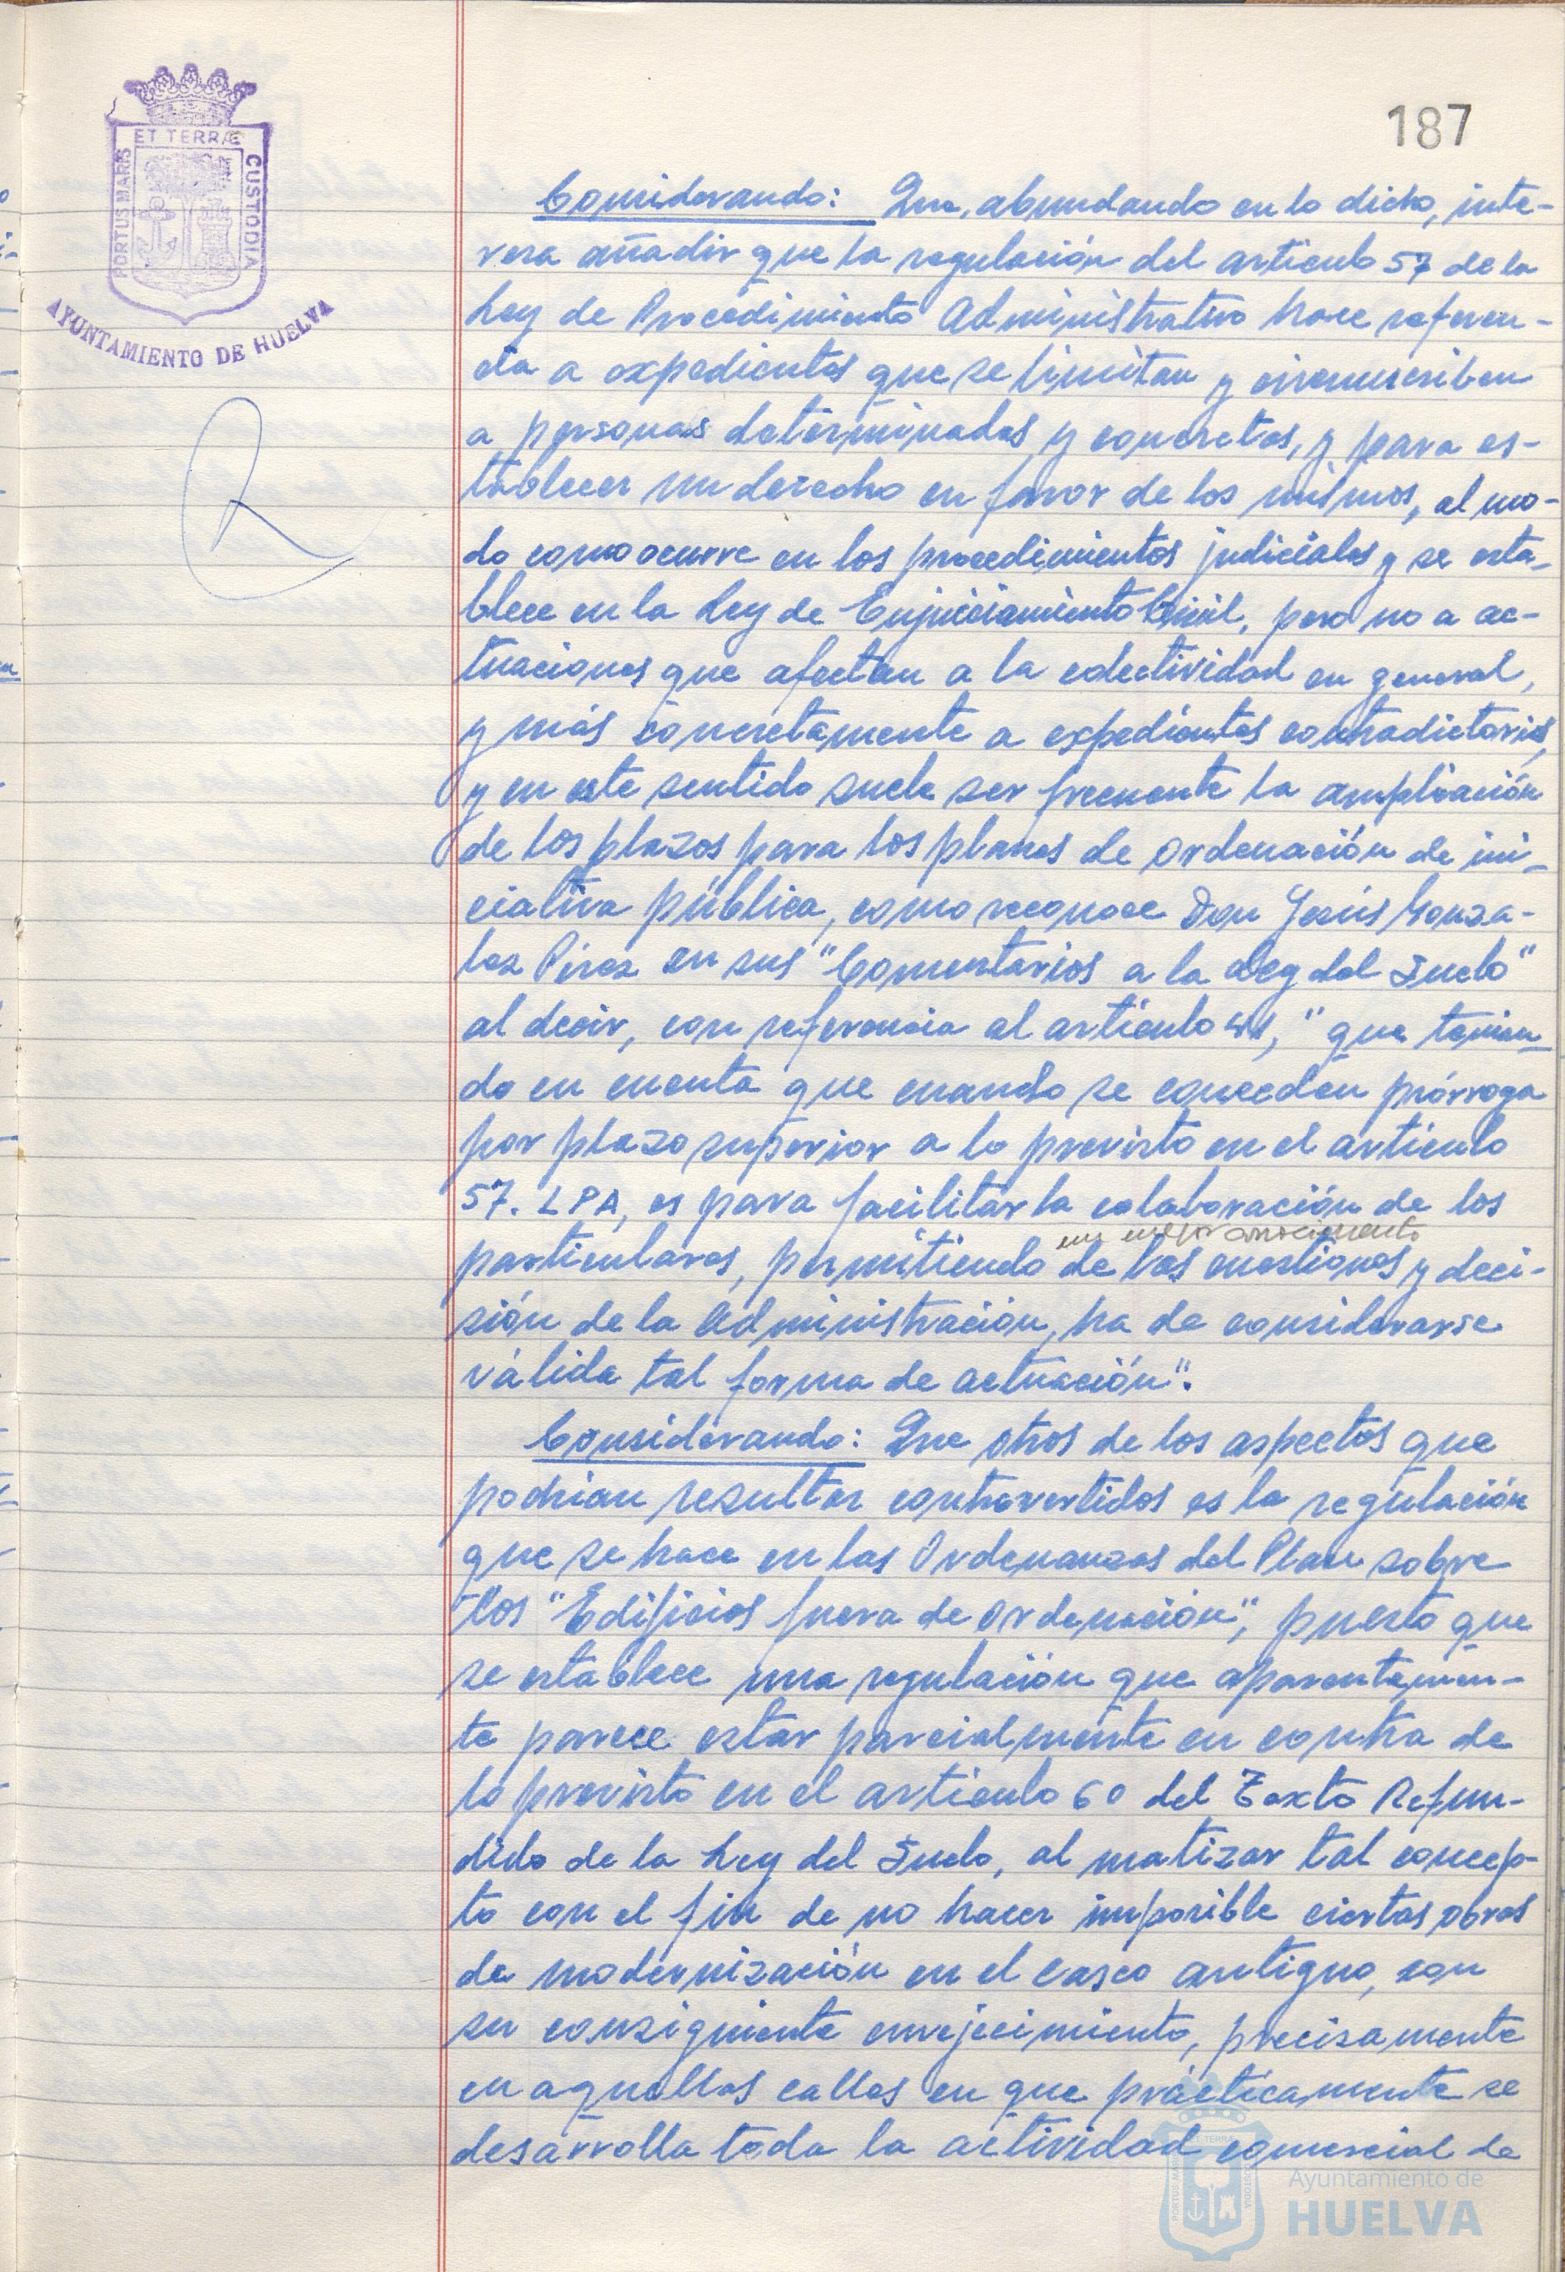 187
ET TERRÆ
PORTUS MARIS
CUSTODIA
AYUNTAMIENTO DE HUELVA
Considerando: Que, abundando en lo dicho, inte-
resa añadir que la regulación del articulo 57 de la
Ley de Procedimiento Administrativo hace referen-
cia a expedientes que se limitan y circunscriben
a personas determinadas y concretas, y para es-
tablecer un derecho en favor de los mismos, al mo-
do como ocurre en los procedimientos judiciales y se esta-
blece en la Ley de Enjuiciamiento Civil, pero no a ac-
tuaciones que afectan a la colectividad en general,
y más concretamente a expedientes contradictorios,
y en este sentido suele ser frecuente la ampliación
de los plazos para los planes de ordenación de ini-
ciativa pública, como reconoce Don Jesús Gonza-
lez Pérez en sus "Comentarios a la Ley del Suelo"
al decir, con referencia al artículo 41, "que tenien-
do en cuenta que cuando se conceden prórroga
por plazo superior a lo previsto en el artículo
57. LPA, es para facilitar la colaboración de los
un mejor conocimiento
particulares, permitiendo de las cuestiones y deci-
sión de la Administración, ha de considerarse
válida tal forma de actuación".
Considerando: Que otros de los aspectos que
podrian resultar controvertidos es la regulación
que se hace en las Ordenanzas del Plan sobre
los "Edificios fuera de ordenación", puesto que
se establece una regulación que aparentemen-
te parece estar parcialmente en contra de
lo previsto en el artículo 60 del Texto Refun-
dido de la Ley del Suelo, al matizar tal concep-
to con el fin de no hacer imposible ciertas obras
de modernización en el casco antiguo, con
su consiguiente envejecimiento, precisamente
en aquellas calles en que prácticamente se
desarrolla toda la actividad comercial de
Ayuntamiento de
HUELVA